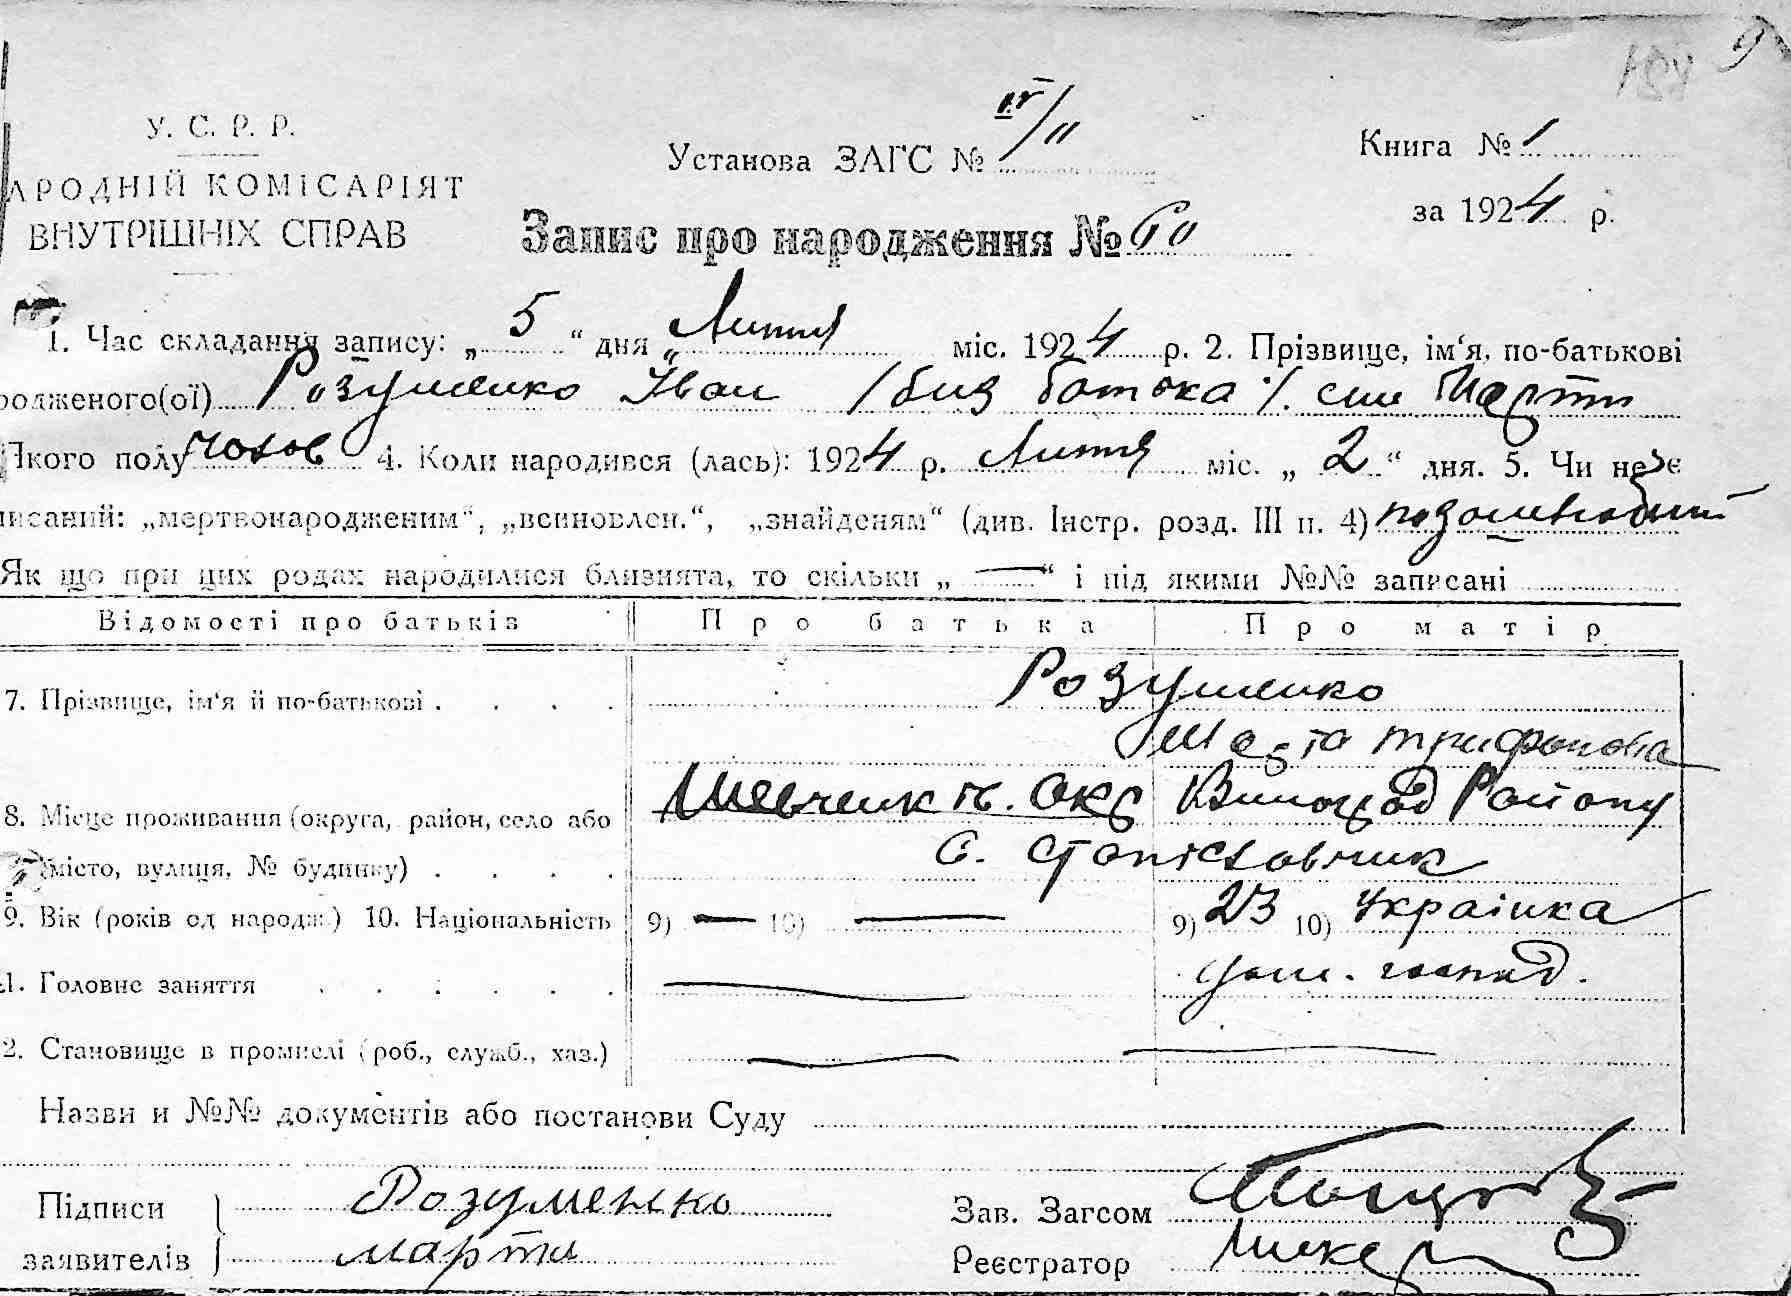 9
У. С. Р. Р.
АРОДНІЙ КОМІСАРІЯТ
ВНУТРІШНІХ СПРАВ
Установа ЗАГС № IV/II
Книга № 1
за 1924 р.
Запис про народження № 60
1. Час складання запису: „ 5 “ дня „ Лютня міс. 1924 р. 2. Прізвище, ім‘я, по-батькові
родженого(ої) Розуменко Іван /биз батька/. син Марти
Якого полу чолов 4. Коли народився (лась): 1924 р. Лютня міс. „ 2 “ дня. 5. Чи не є
писаний: „мертвонародженим“, „всиновлен.“, „знайденям“ (див. Інстр. розд. III п. 4)
Як що при цих родах народилися близнята, то скільки „ — “ і під якими №№ записані
Відомості про батьків Про батька Про матір
7. Прізвище, ім‘я й по-батькові . . . . Розуменко
Марта Трифонова
8. Місце проживання (округа, район, село або Шевченків. Окр Виногрод Району
місто, вулиця, № будинку) . . . . С. Станіславчик
9. Вік (років од народж.) 10. Національність 9) — 10) — 9) 23 10) Українка
1. Головне заняття . . . . . . — дом. господ.
2. Становище в промислі (роб., служб., хаз.) — —
Назви и №№ документів або постанови Суду
Підписи Розуменко Зав. Загсом
заявителів Марта Реєстратор